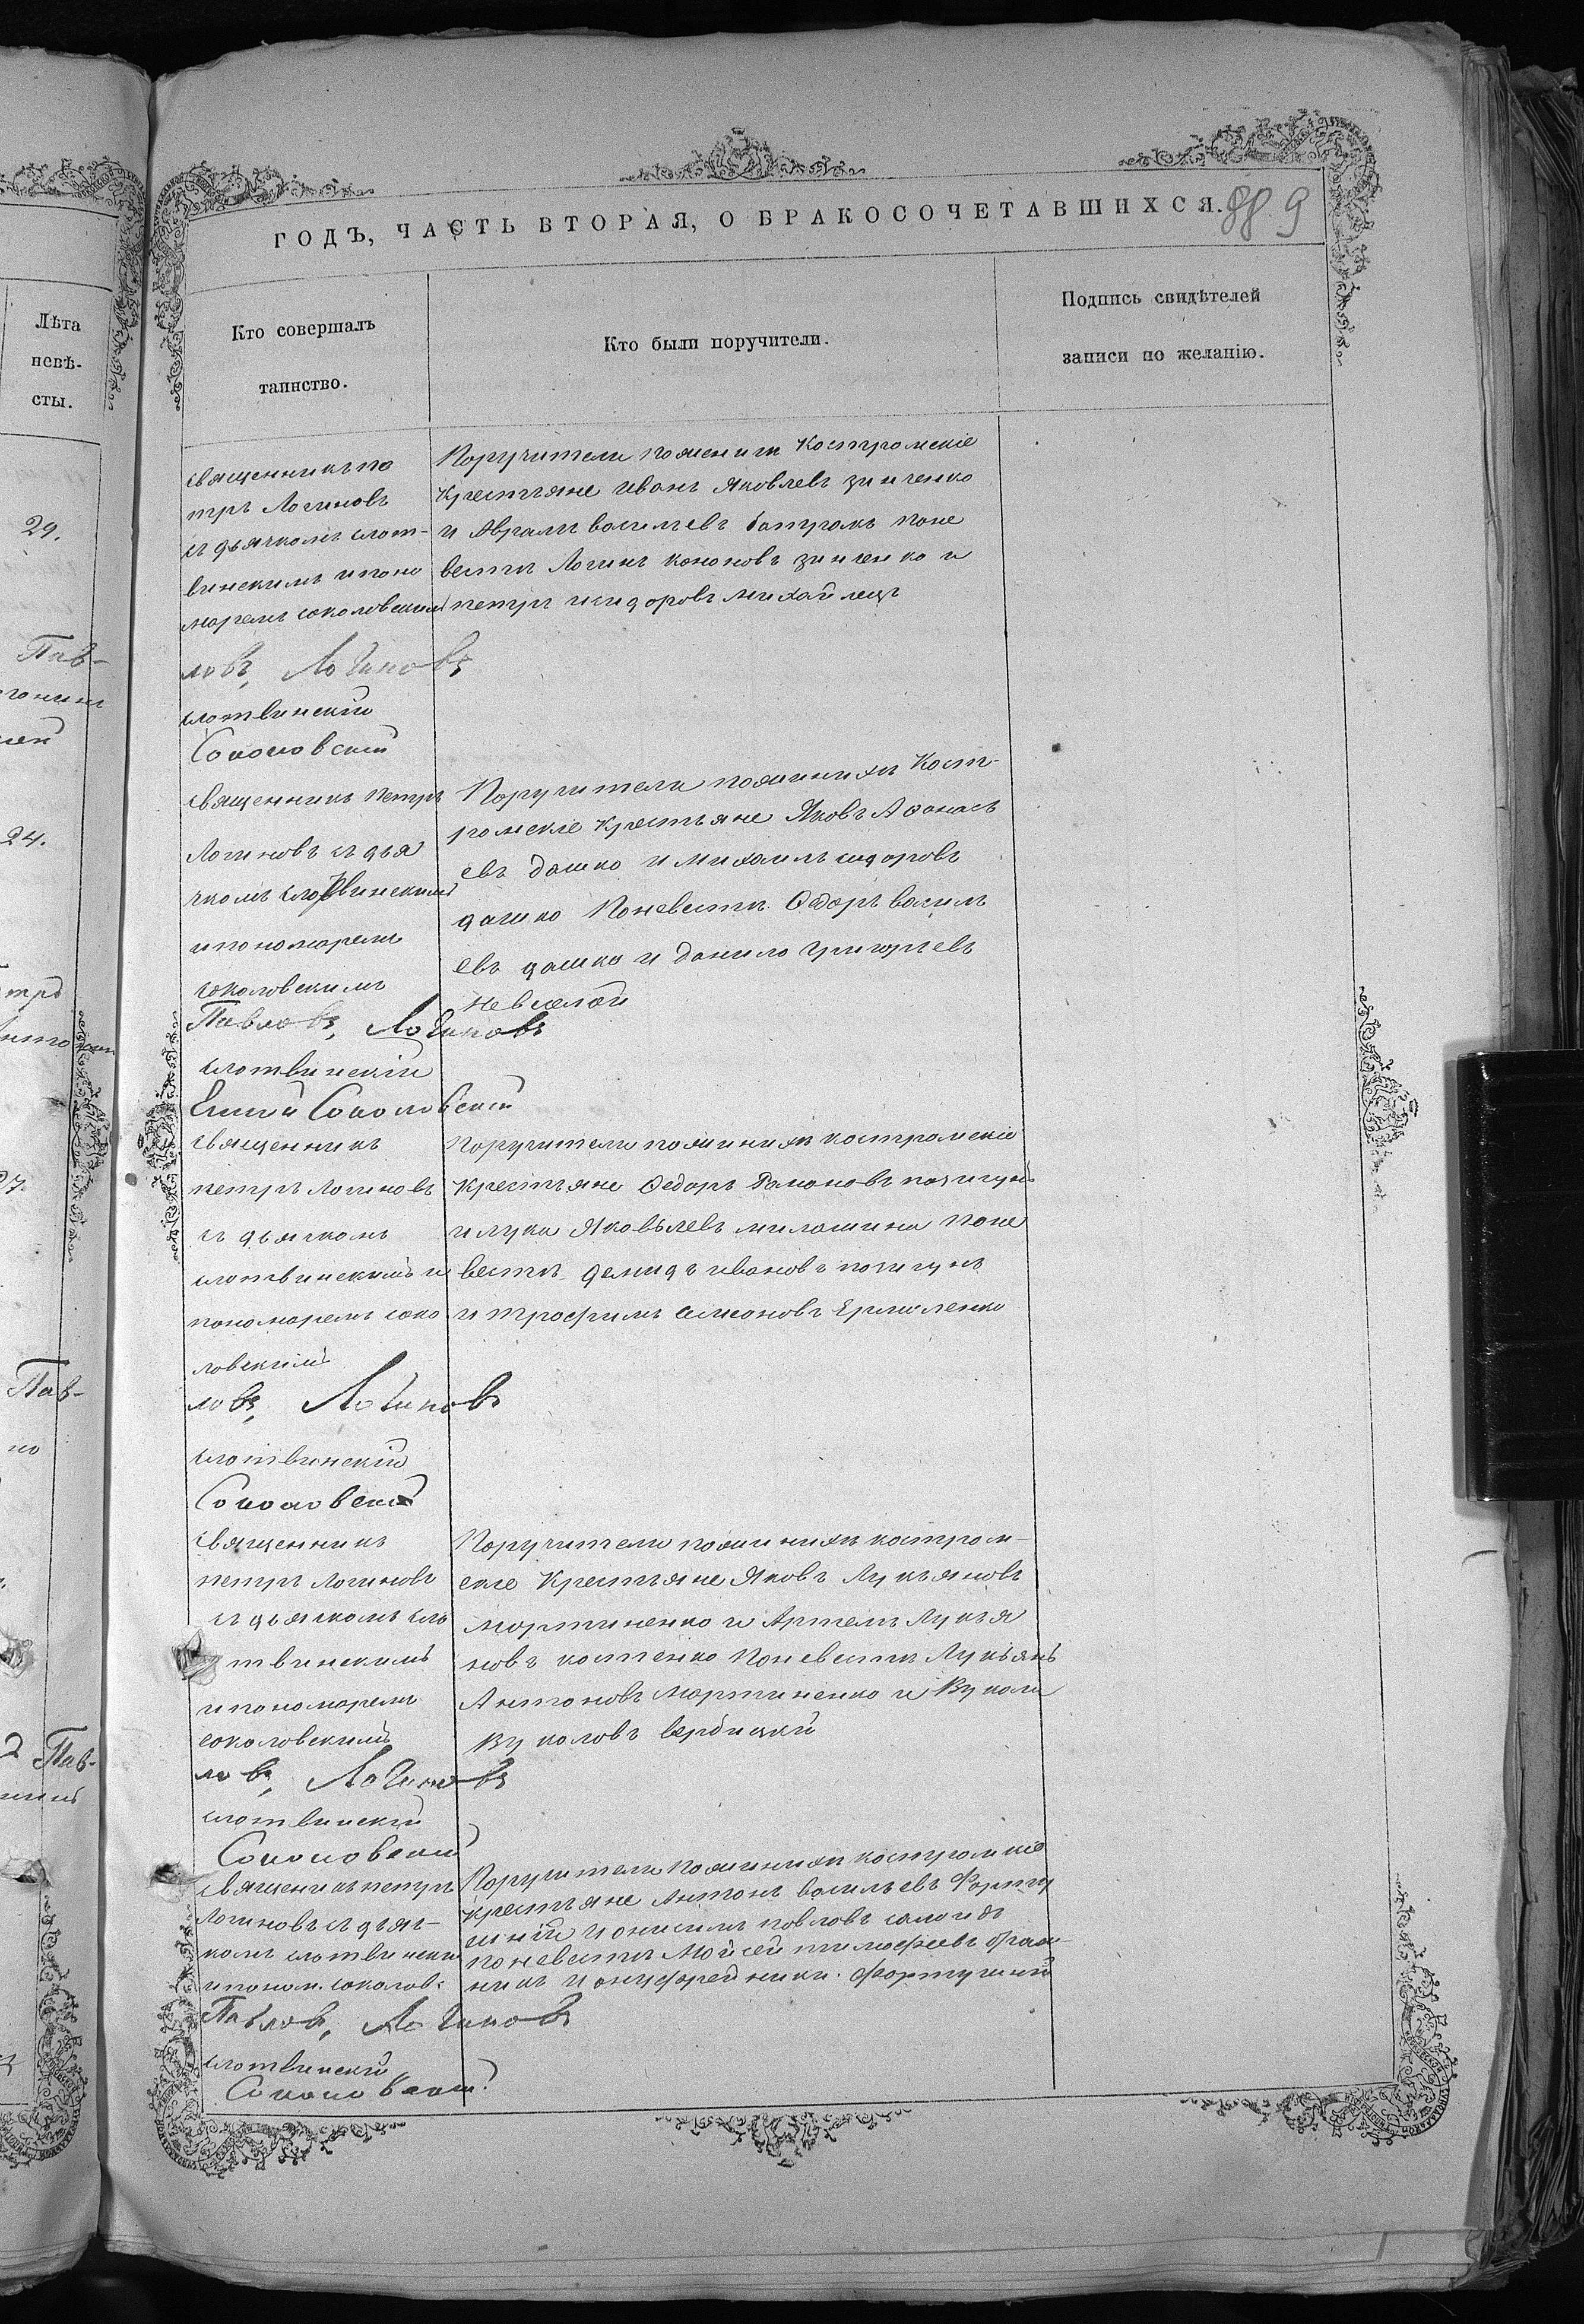 ГОДЪ, ЧАСТЬ ВТОРАЯ, О БРАКОСОЧЕТАВШИХСЯ.
889
Лѣта
невѣ-
сты.
Кто совершалъ
таинство.
Кто были поручители.
Подпись свидѣтелей
записи по желанію.
29.
Пав-
24.
27.
Пав-
Пав-
священникъ пе
тръ Логиновъ
съ дьячкомъ слот-
винскимъ и поно
маремъ соколовскимъ
ловъ, Логиновъ
слотвинскій
Соколовскій
Поручители по жених Костромскіе
Крестьяне Иванъ Яковлевъ зинченко
и Аврамъ василевъ батракъ поне
весте Логинъ кононовъ зинченко и
петръ исидоровъ михайлецъ
священникъ Петръ
Логиновъ съ дья
чкомъ слотвинскимъ
и пономаремъ
соколовскимъ
Павловъ, Логиновъ
слотвинскій
Соколовскій
Поручители по женихи Кост-
ромскіе крестьяне Яковъ Афонась
евъ дашко и михаилъ сидоровъ
дашко Поневести Ѳедоръ васил
евъ дашко и данило григорьевъ
священникъ
петръ Логиновъ
съ дьячкомъ
слотвинскимъ и
пономаремъ соко
ловскимъ
ловъ, Логиновъ
слотвинскій
Соколовскій
поручители по женихи костромскіе
Крестьяне Ѳедоръ
и лука Яковлевъ поне
вести демидъ ивановъ
и трофимъ Ермоленко
священникъ
петръ Логиновъ
съ дьячкомъ сло
твинскимъ
и пономаремъ
соколовскимъ
ловъ, Логиновъ
слотвинскій
Соколовскій
Поручители по женихи костром-
скіе Крестьяне Яковъ Лукьяновъ
мартиненко и Артемъ Лукья
новъ костенко Поневести Лукьянъ
Антоновъ мартиненко и Вукола
Вуколовъ вербицкій
священикъ петръ
Логиновъ съ дьяч-
комъ слотвински
и поном. соколов:
Павловъ, Логиновъ
слотвинскій
Соколовскій
Поручители по женихи костромскіе
крестьяне Антонъ васильевъ
и онисимъ павловъ
поневести Мойсей тимофеевъ